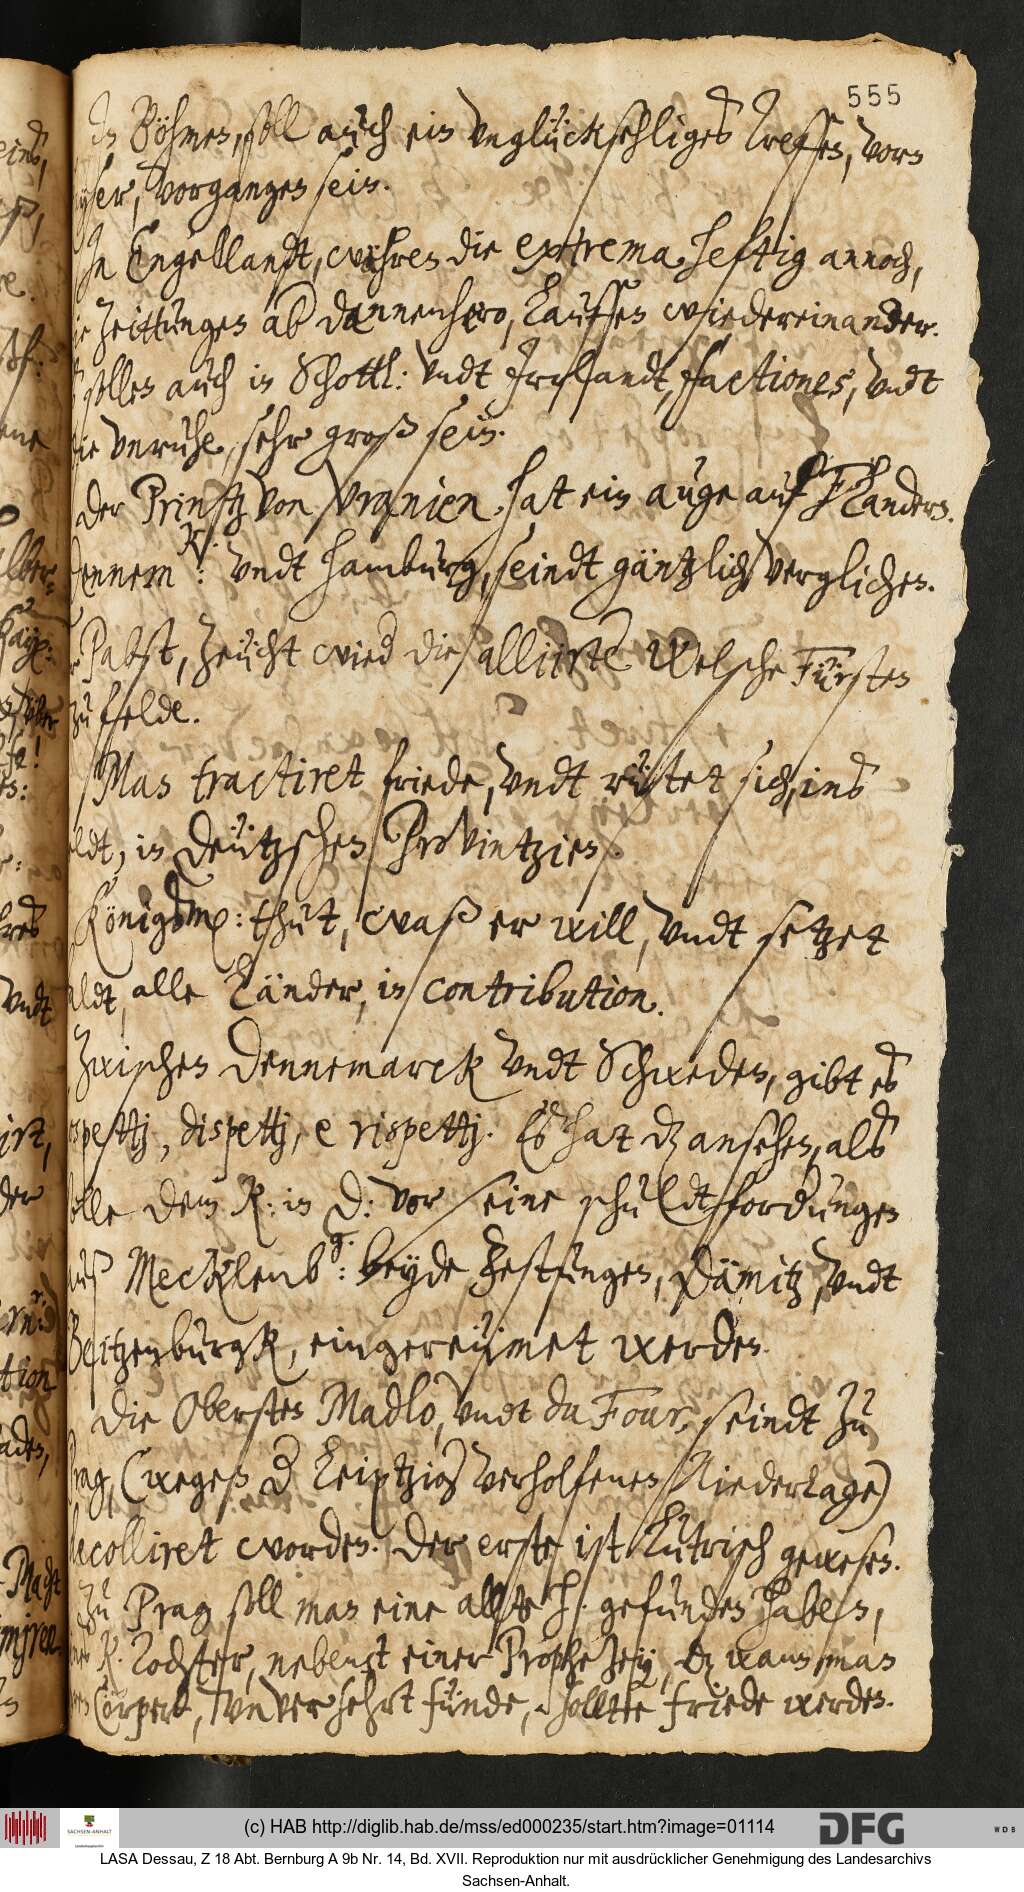 555
In Böhmen, soll auch ein vnglücksehliges Treffen, vorm
vorgangen sein.
In Engellandt, wehren die extrema, heftig annoch,
die Zeittungen ab dannenhero, lauffen wiedereinander.
sollen auch in Schottl: vndt Irrlandt, factiones, vndt
die vnruhe, sehr groß sein.
Der Printz von Vranien, hat ein auge auf Flandern.
Dennem Rk: vndt Hamburg, seindt gäntzlich verglichen.
Pabst, zeucht wied die alliirte Welsche Fürsten
zu felde.
Man tractiret friede, vndt rüstet sich, ins
in Deützschen Provintzien.
Königsm: thut, waß er will, vndt setzet
baldt, alle Länder, in contribution.
Zwischen Dennemarck vndt Schweden, gibt es
dispettj, e rispettj. Es hat dz ansehen, als
solle dem K: in D: vor seine schuldtforderungen
auß Mecklenb g: beyde Festungen, Dämitz, vndt
Boitzenburgk, eingereümet werden.
Die Obersten Madlo, vndt du Four, seindt zu
Prag, (wegen d Leiptzig verholfenen Niederlage)
decolliret worden. Der erste ist Lutrisch gewesen.
Zu Prag soll man eine allte H: gefunden haben,
K. Tochter, nebenst einer Prophezey, dz wann man
Cörper, vnversehrt fünde, sollte friede werden.
(c) HAB http://diglib.hab.de/mss/ed000235/start.htm?image=01114
SACHSEN-ANHALT
DFG
WDB
LASA Dessau, Z 18 Abt. Bernburg A 9b Nr. 14, Bd. XVII. Reproduktion nur mit ausdrücklicher Genehmigung des Landesarchivs
Sachsen-Anhalt.